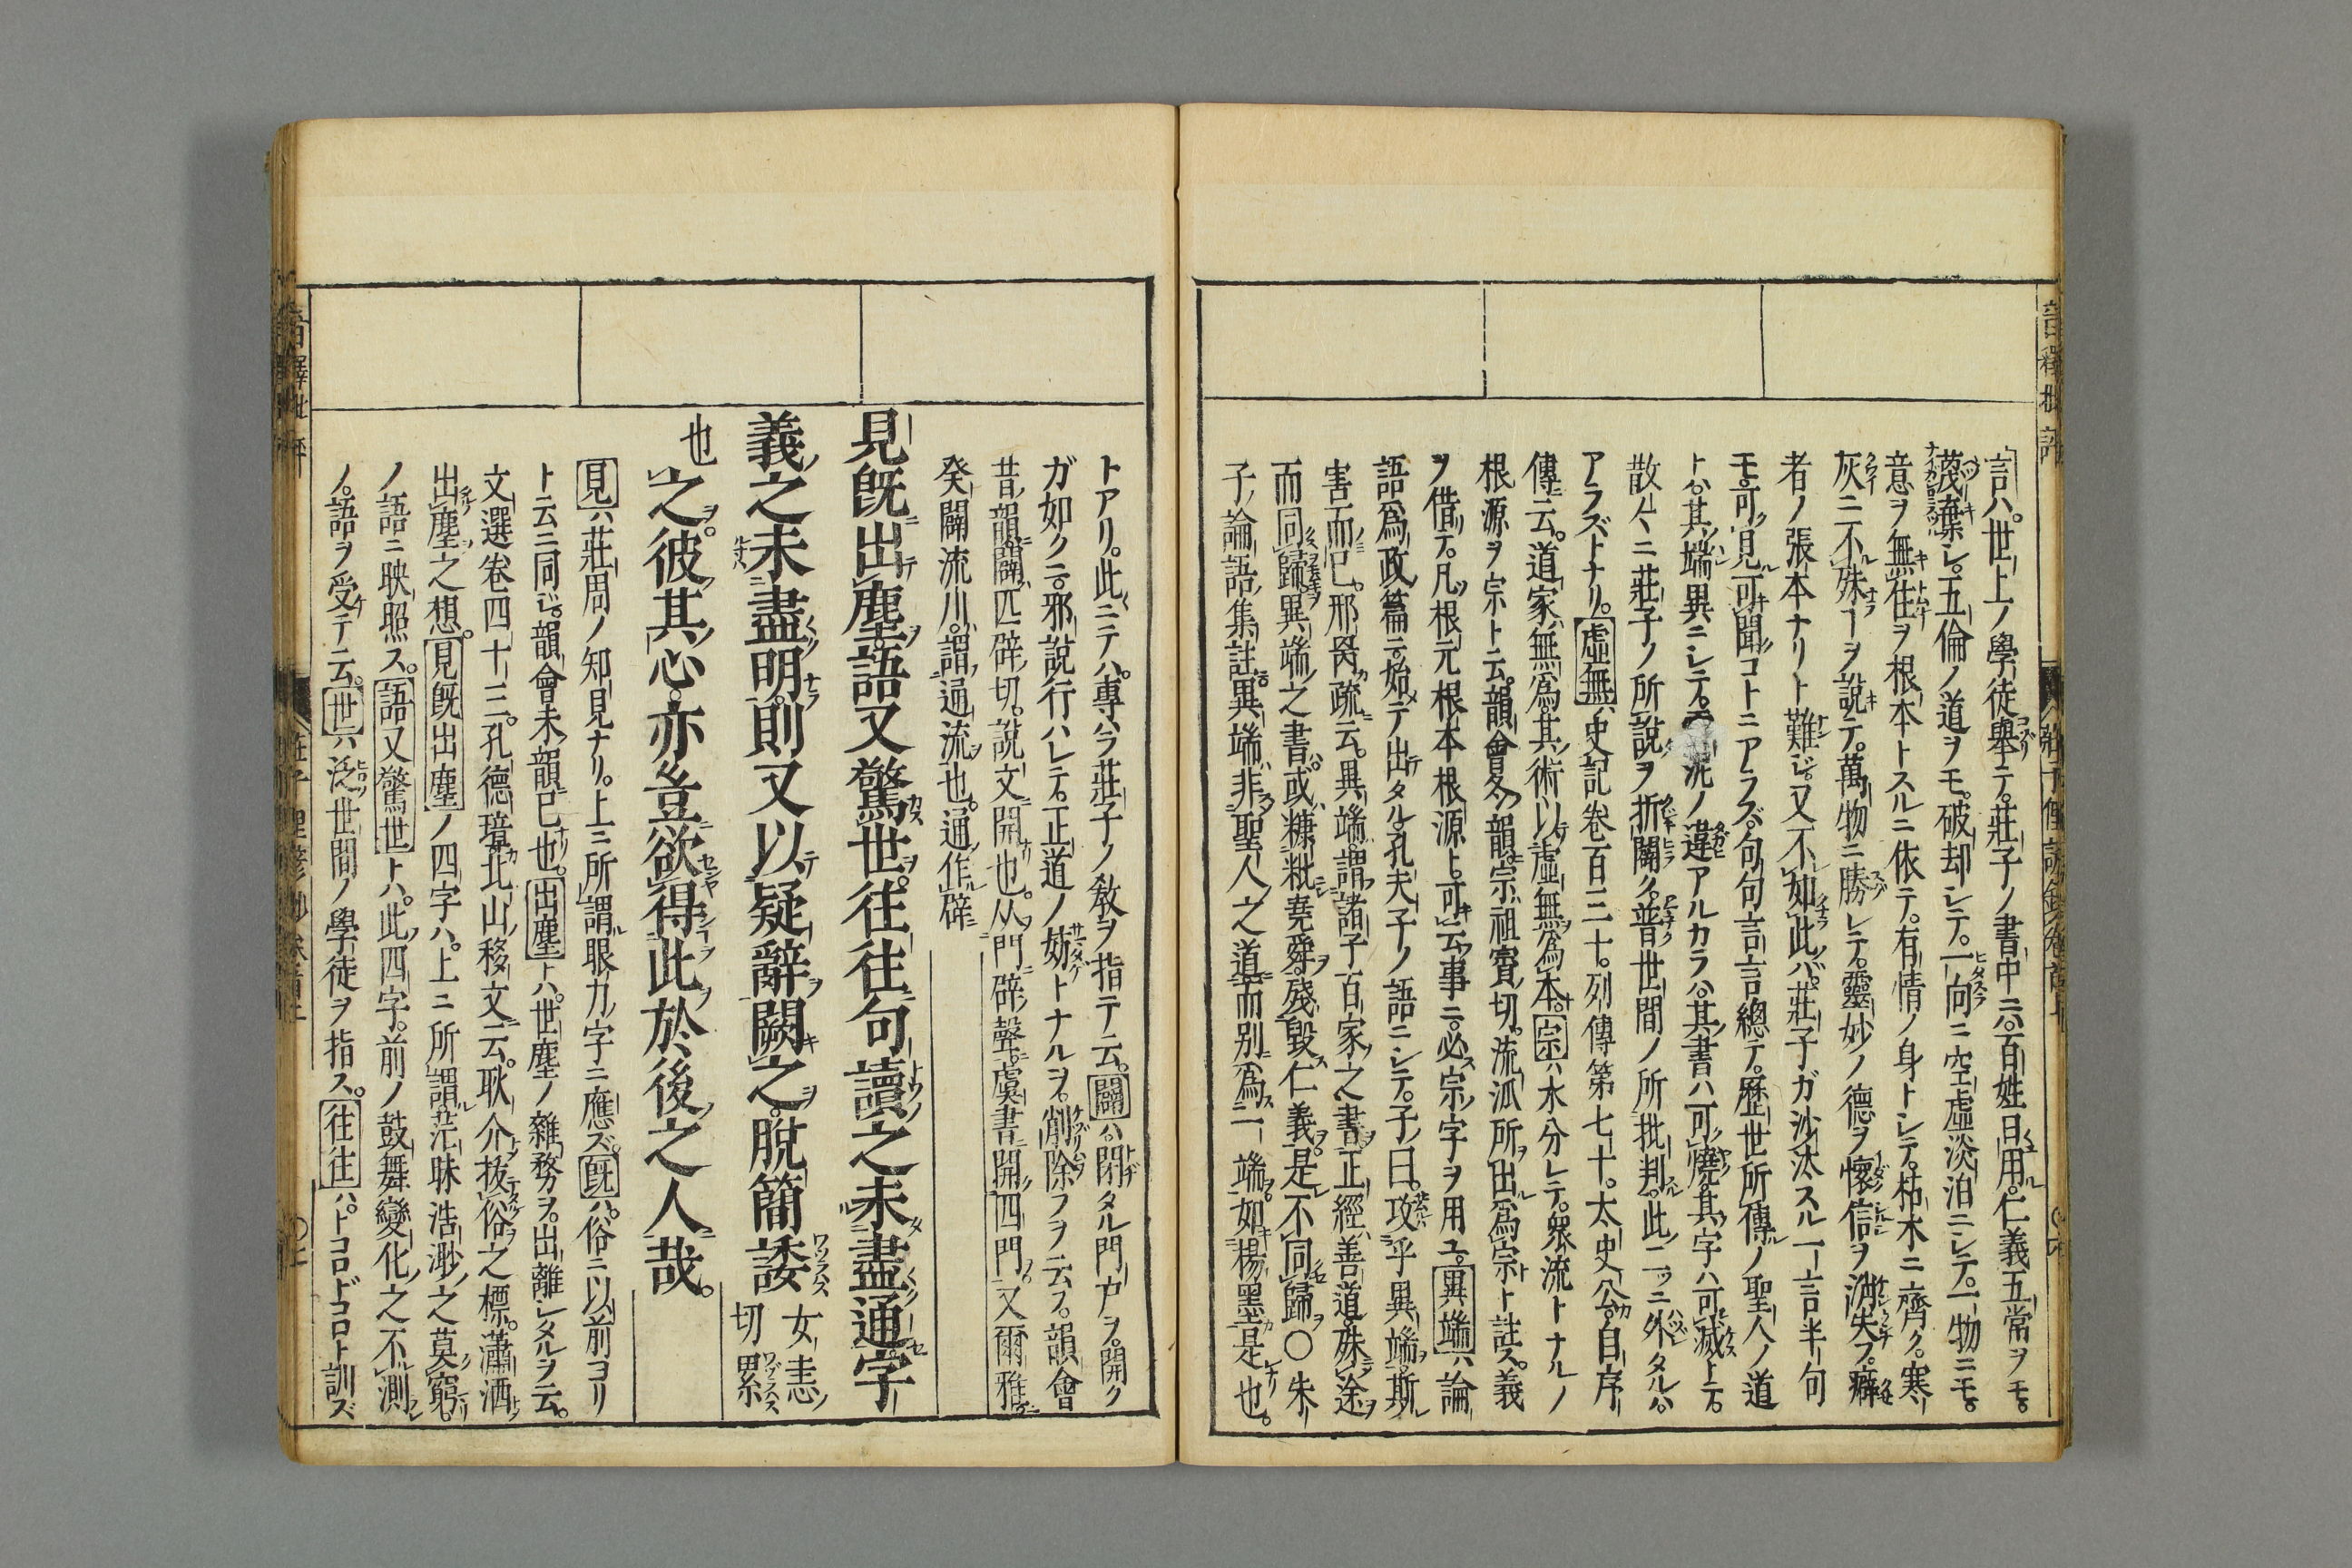 言ハ。世上ノ學徒。擧テ。莊子ノ書中ニハ。百姓日用。仁義五常ヲモ。
蔑棄シ。五倫ノ道ヲモ。破却シテ。一向ニ空虛淡泊ニシテ。一物ニモ。
意ヲ無住ヲ根本トスルニ依テ。有情ノ身トシテ。枯木ニ齊ク。寒
灰ニ不殊ヿヲ說テ。萬物ニ勝レテ。靈妙ノ德ヲ懷信ヲ消失フ。癖
者ノ張本ナリト難ジ。又不如此ハ。莊子ガ沙汰スル一言半句
モ。可見可聞コトニアラズ。句句言言總テ。歷世所傳ノ聖人ノ道
トハ。其端異ニシテ。ノ違アルカラハ。其書ハ可燒。其字ハ可滅トテ。
散々ニ莊子ノ所說ヲ折闢ク。普世間ノ所批判。此二ツニ外タルハ。
アラズトナリ。虛無ハ史記卷百三十。列傳第七十。太史公自序
傳云。道家無爲。其術以虛無爲本。宗ハ水分レテ。衆流トナルノ
根源ヲ宗ト云。韻會冬韻。宗祖賨切。流泒所出爲宗ト註ス。義
ヲ借テ。凡根元根本根源ト。可云事ニ。必宗字ヲ用ユ。異端ハ論
語爲政篇ニ。始テ出タル。孔夫子ノ語ニシテ。子曰。攻乎異端。斯
害而已。邢昺疏云。異端。謂諸子百家之書。正經善道。殊途
而同歸。異端之書。或糠粃堯舜。殘毀仁義。是不同歸〇朱
子論語集註。異端非聖人之道而別爲一端。如楊墨是也。
トアリ。此ニテハ。專ハラ莊子ノ敎ヲ指テ云。闢ハ。閉タル門戸ヲ。開ク
ガ如クニ。邪說行ハレテ。正道ノ妨トナルヲ。削除フヲ云フ。韻會
昔韻。闢匹辟切。說文開也。从門辟聲。虞書開四門。又爾雅
癸闢流川。謂通流也。通作辟
見旣出塵語又驚世。往往句讀之未盡通字
義之未盡明。則又以疑辭闕之。脫簡諉女恚切累
也
之。彼其心。亦豈欲得此於後之人哉。
見ハ莊周ノ知見ナリ。上ニ所謂眼力ノ字ニ應ズ。旣ハ俗ニ以前ヨリ
ト云ニ同ジ。韻會未韻。已也。出塵トハ。世塵ノ雜務ヲ。出離シタルヲ云。
文選卷四十三。孔德璋北山移文云。耿介拔俗之標。瀟洒
出塵之想。見旣出塵ノ四字ハ。上ニ所謂茫昧浩渺之莫窮。
ノ語ニ映照ス。語又驚世トハ。此四字。前ノ鼓舞變化之不測
ノ。語ヲ受テ云。世ハ泛世間ノ學徒ヲ指ス。往往ハ。トコロドコロト訓ズ